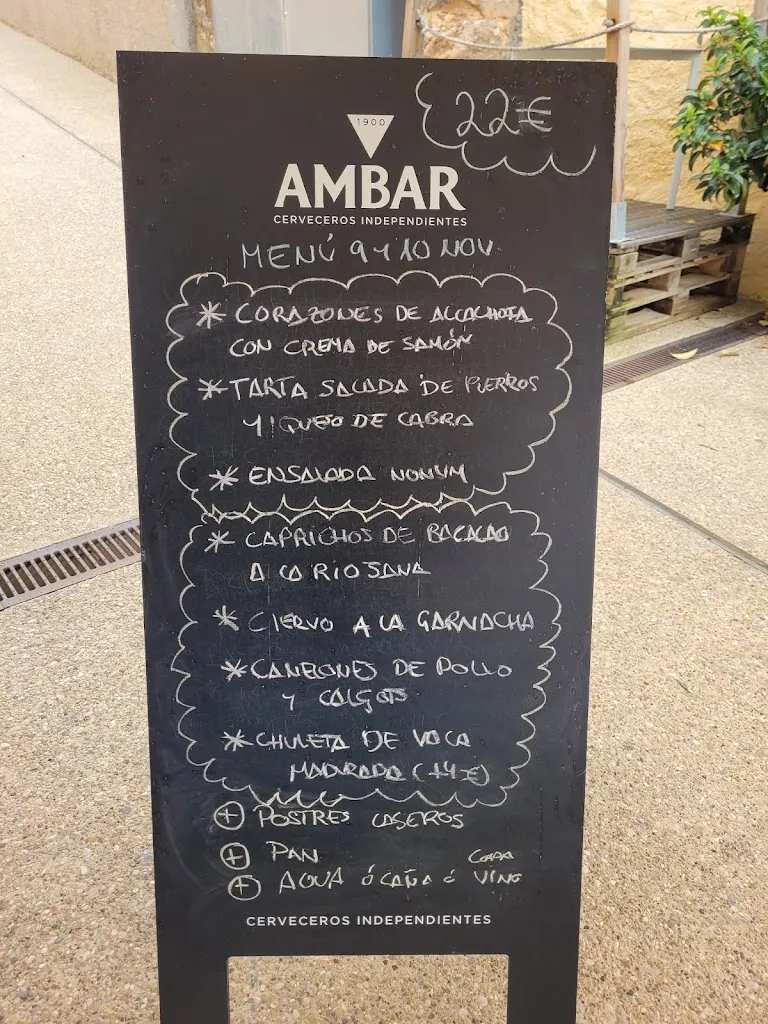 22€
1900
AMBAR
CERVECEROS INDEPENDIENTES
MENÚ 9 Y 10 NOV
* CORAZONES DE ALCACHOFA
CON CREMA DE JAMÓN
* TARTA SALADA DE PUERROS
Y QUESO DE CABRA
* ENSALADA
* CAPRICHOS DE BACALAO
A LA RIOJANA
* CIERVO A LA GARNACHA
* CANELONES DE POLLO
Y CALÇOTS
* CHULETA DE VACA
MADURADA (+4€)
+ POSTRES CASEROS
+ PAN
COPA
+ AGUA Ó CAÑA Ó VINO
CERVECEROS INDEPENDIENTES